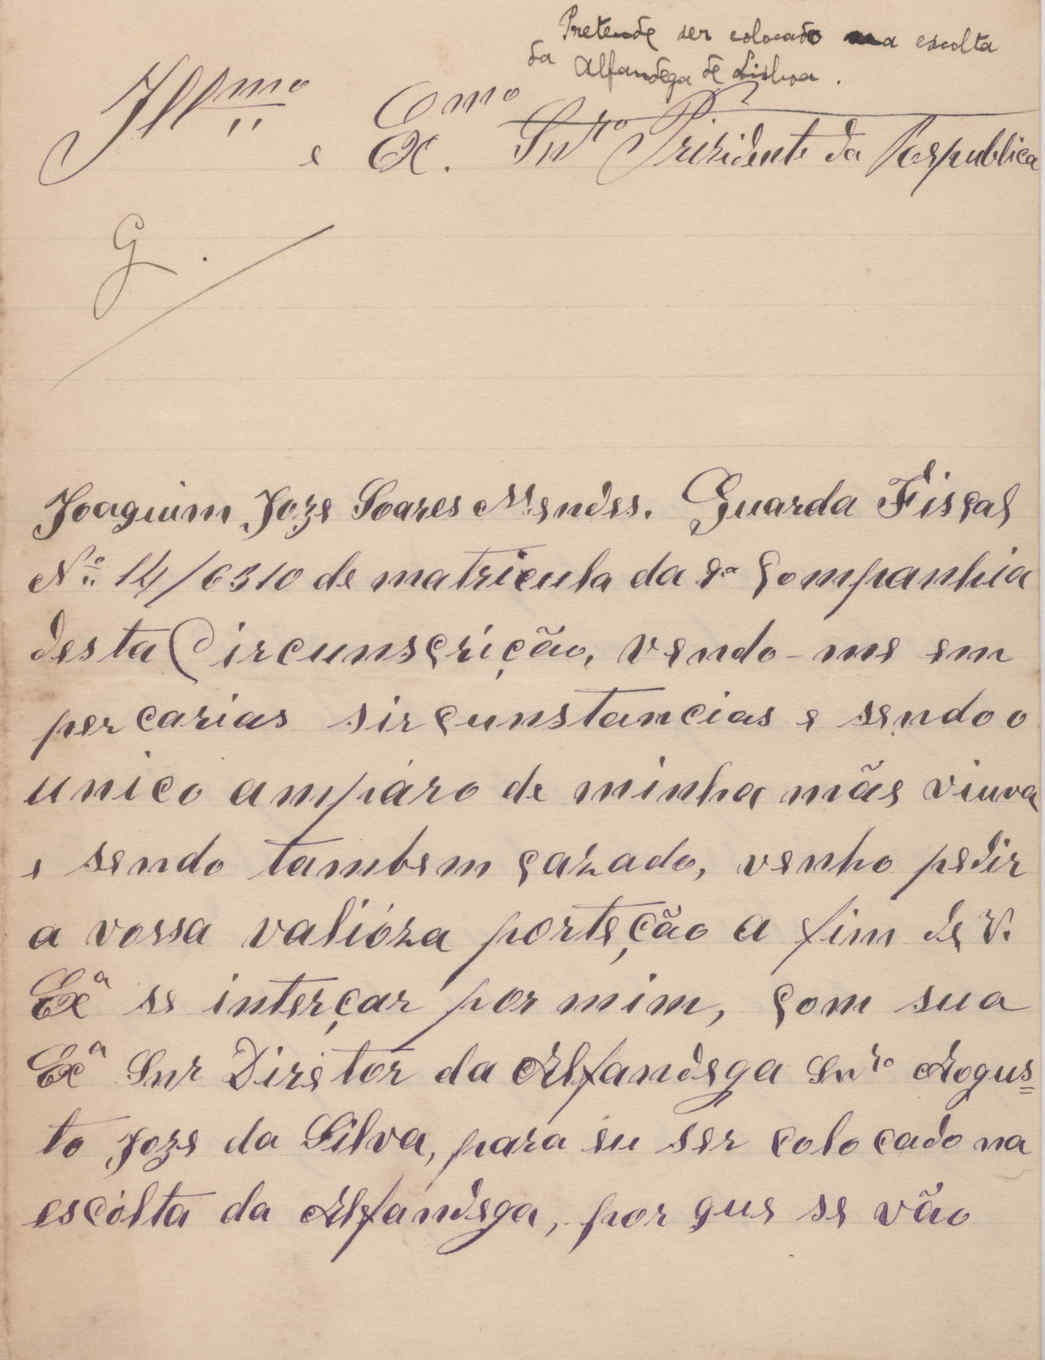 Pretende ser colocado na escolta
da Alfandega de Lisboa.
Illmo
e Exmo. Snro Prizidente da Respublica
G.
Joaquim Joze Soares Mendes. Guarda Fisçal
No. 14/6310 de matricula da 2a Çompanhia
desta Circunsçrição, vendo-me em
percarias sirçunstancias e sendo o
unico ampáro de minha mãe viuva
e sendo tambem çazado, venho pedir
a vossa valióza porteção a fim de V.
Exa se interçar por mim, çom sua
Exa Snr Diretór da Alfandega Snro Aogus=
to Joze da Silva, para eu ser çolocado na
escólta da Alfandega, por que se vão